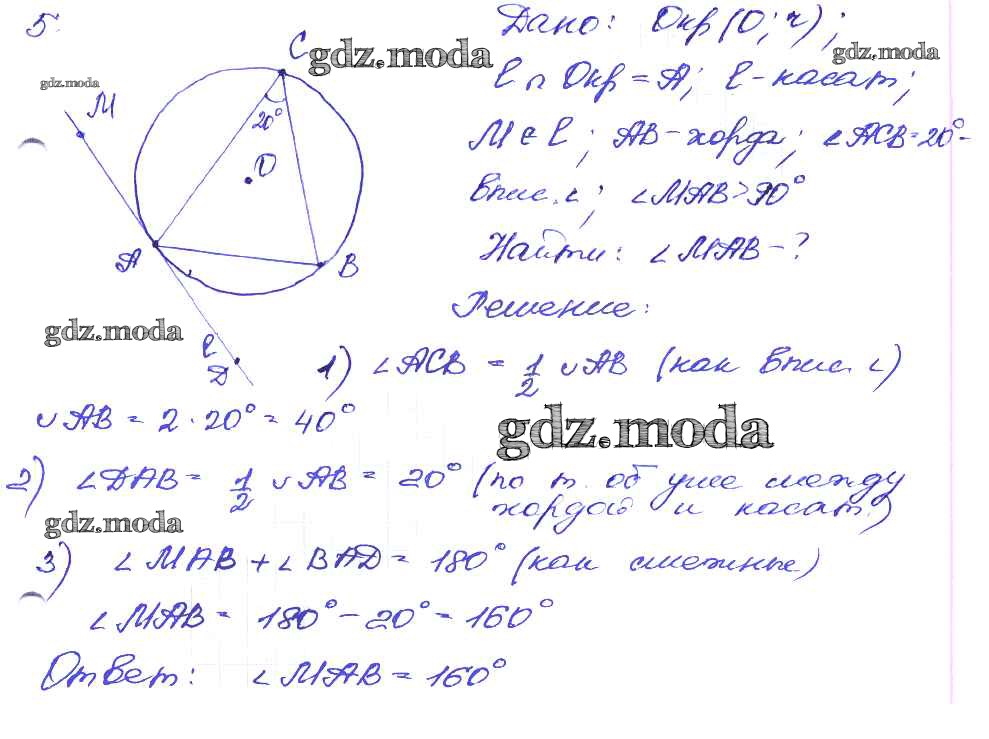 5.
Дано: Окр(O; r);
gdz.moda
gdz.moda
gdz.moda
C
M
20°
O
A
B
ℓ
D
ℓ ∩ Окр = A; ℓ - касат;
M ∈ ℓ; AB - хорда; ∠ACB = 20° -
впис. ∠; ∠MAB > 90°
Найти: ∠MAB - ?
Решение:
gdz.moda
1) ∠ACB = 1/2 ∪AB (как впис. ∠)
∪AB = 2 · 20° = 40°
gdz.moda
2) ∠DAB = 1/2 ∪AB = 20° (по т. об угле между
хордой и касат.)
gdz.moda
3) ∠MAB + ∠BAD = 180° (как смежные)
∠MAB = 180° - 20° = 160°
Ответ: ∠MAB = 160°